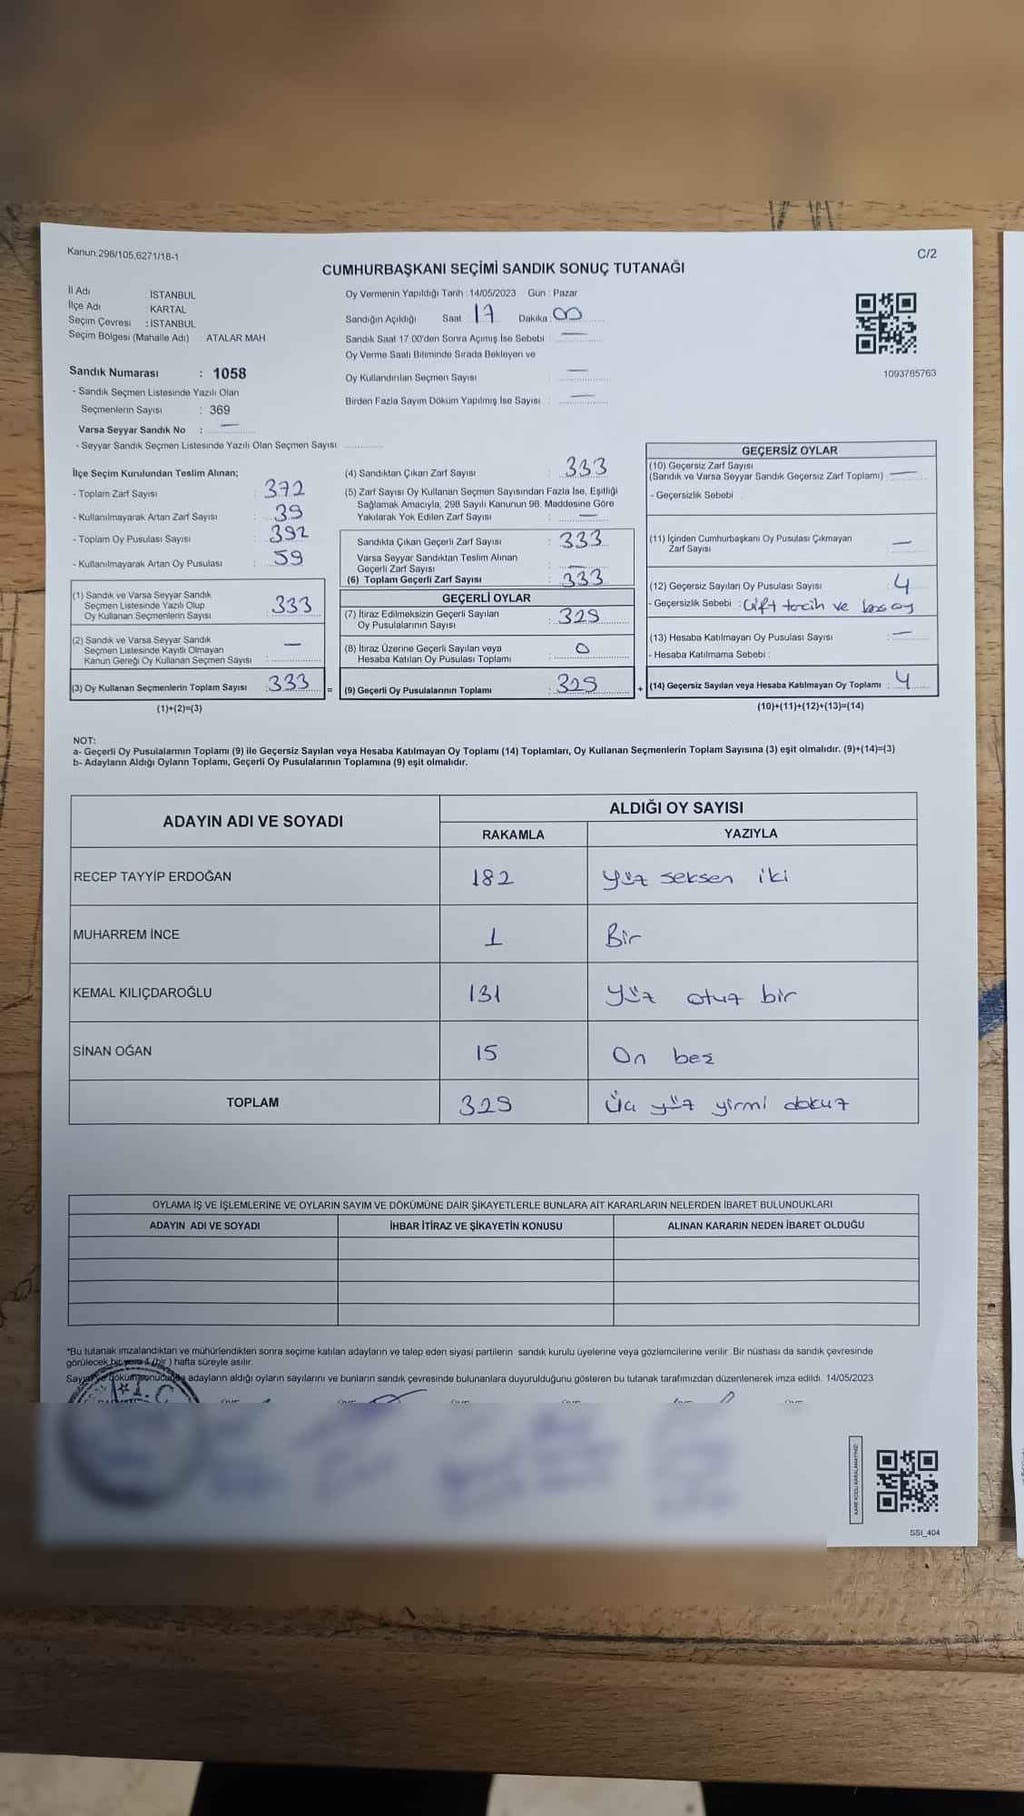 Kanun:298/105,6271/18-1
C/2
CUMHURBAŞKANI SEÇİMİ SANDIK SONUÇ TUTANAĞI
İl Adı : İSTANBUL
İlçe Adı : KARTAL
Seçim Çevresi : İSTANBUL
Seçim Bölgesi (Mahalle Adı) ATALAR MAH
Oy Vermenin Yapıldığı Tarih : 14/05/2023 Gün : Pazar
Sandığın Açıldığı Saat 17 Dakika 00
Sandık Saat 17.00'den Sonra Açımış İse Sebebi : —
Oy Verme Saati Bitiminde Sırada Bekleyen ve
Oy Kullandırılan Seçmen Sayısı : —
Birden Fazla Sayım Döküm Yapılmış İse Sayısı : —
1093785763
Sandık Numarası : 1058
- Sandık Seçmen Listesinde Yazılı Olan
Seçmenlerin Sayısı : 369
Varsa Seyyar Sandık No : —
- Seyyar Sandık Seçmen Listesinde Yazılı Olan Seçmen Sayısı :
İlçe Seçim Kurulundan Teslim Alınan;
- Toplam Zarf Sayısı : 372
- Kullanılmayarak Artan Zarf Sayısı : 39
- Toplam Oy Pusulası Sayısı : 392
- Kullanılmayarak Artan Oy Pusulası : 59
(1) Sandık ve Varsa Seyyar Sandık
Seçmen Listesinde Yazılı Olup
Oy Kullanan Seçmenlerin Sayısı : 333
(2) Sandık ve Varsa Seyyar Sandık
Seçmen Listesinde Kayıtlı Olmayan
Kanun Gereği Oy Kullanan Seçmen Sayısı : —
(3) Oy Kullanan Seçmenlerin Toplam Sayısı : 333
(1)+(2)=(3)
(4) Sandıktan Çıkan Zarf Sayısı : 333
(5) Zarf Sayısı Oy Kullanan Seçmen Sayısından Fazla İse, Eşitliği
Sağlamak Amacıyla, 298 Sayılı Kanunun 98. Maddesine Göre
Yakılarak Yok Edilen Zarf Sayısı : —
Sandıkta Çıkan Geçerli Zarf Sayısı : 333
Varsa Seyyar Sandıktan Teslim Alınan
Geçerli Zarf Sayısı : —
(6) Toplam Geçerli Zarf Sayısı : 333
GEÇERLİ OYLAR
(7) İtiraz Edilmeksizin Geçerli Sayılan
Oy Pusulalarının Sayısı : 329
(8) İtiraz Üzerine Geçerli Sayılan veya
Hesaba Katılan Oy Pusulası Toplamı : 0
= (9) Geçerli Oy Pusulalarının Toplamı : 329
GEÇERSİZ OYLAR
(10) Geçersiz Zarf Sayısı
(Sandık ve Varsa Seyyar Sandık Geçersiz Zarf Toplamı) : —
- Geçersizlik Sebebi :
(11) İçinden Cumhurbaşkanı Oy Pusulası Çıkmayan
Zarf Sayısı : —
(12) Geçersiz Sayılan Oy Pusulası Sayısı : 4
- Geçersizlik Sebebi : Çift tercih ve boş oy
(13) Hesaba Katılmayan Oy Pusulası Sayısı : —
- Hesaba Katılmama Sebebi :
+ (14) Geçersiz Sayılan veya Hesaba Katılmayan Oy Toplamı : 4
(10)+(11)+(12)+(13)=(14)
NOT:
a- Geçerli Oy Pusulalarının Toplamı (9) ile Geçersiz Sayılan veya Hesaba Katılmayan Oy Toplamı (14) Toplamları, Oy Kullanan Seçmenlerin Toplam Sayısına (3) eşit olmalıdır. (9)+(14)=(3)
b- Adayların Aldığı Oyların Toplamı, Geçerli Oy Pusulalarının Toplamına (9) eşit olmalıdır.
ADAYIN ADI VE SOYADI ALDIĞI OY SAYISI
RAKAMLA YAZIYLA
RECEP TAYYİP ERDOĞAN 182 Yüz seksen iki
MUHARREM İNCE 1 Bir
KEMAL KILIÇDAROĞLU 131 Yüz otuz bir
SİNAN OĞAN 15 On beş
TOPLAM 329 Üç yüz yirmi dokuz
OYLAMA İŞ VE İŞLEMLERİNE VE OYLARIN SAYIM VE DÖKÜMÜNE DAİR ŞİKAYETLERLE BUNLARA AİT KARARLARIN NELERDEN İBARET BULUNDUKLARI
ADAYIN ADI VE SOYADI İHBAR İTİRAZ VE ŞİKAYETİN KONUSU ALINAN KARARIN NEDEN İBARET OLDUĞU
*Bu tutanak imzalandıktan ve mühürlendikten sonra seçime katılan adayların ve talep eden siyasi partilerin sandık kurulu üyelerine veya gözlemcilerine verilir. Bir nüshası da sandık çevresinde
görülecek bir yere 1 (bir) hafta süreyle asılır.
Sayım ve döküm sonucunda adayların aldığı oyların sayılarını ve bunların sandık çevresinde bulunanlara duyurulduğunu gösteren bu tutanak tarafımızdan düzenlenerek imza edildi. 14/05/2023
T.C.
SSI_404